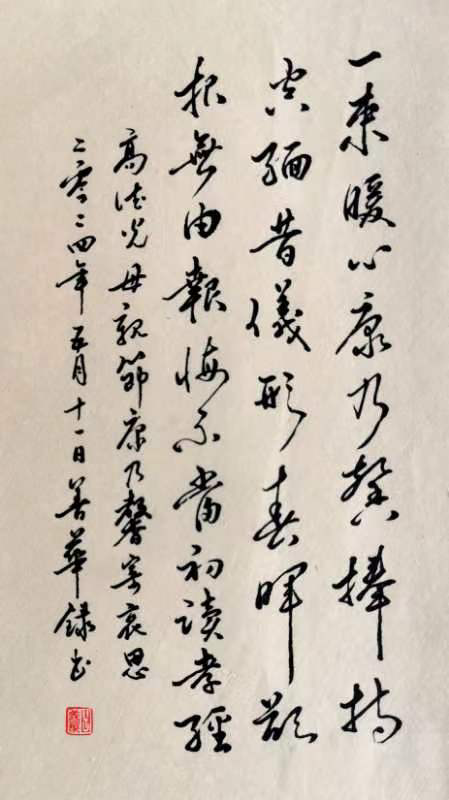 一束暖心康乃馨捧持
空緬昔儀形春暉欲
报無由報悔不當初讀孝經
高德光母親節康乃馨寄哀思
二零二四年五月十一日善華錄書